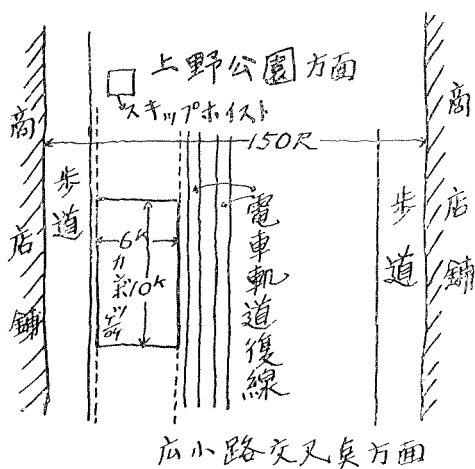 上野公園方面
スキップホイスト
150R
商店舗
歩道
6k
10k
電車軌道復線
歩道
商店舗
広小路交叉点方面